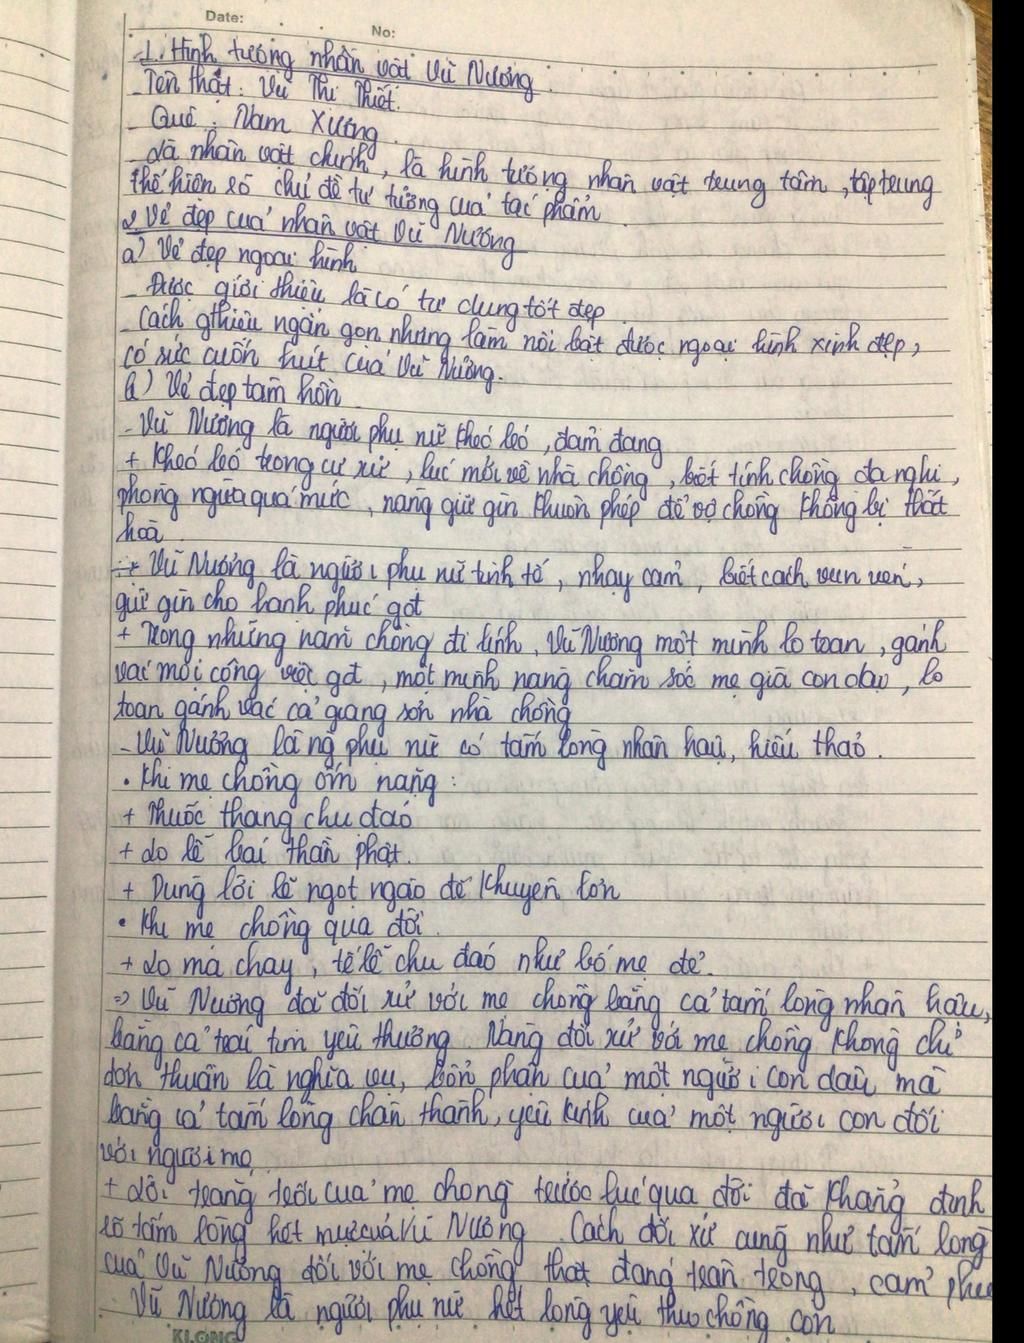 Date:
No:
1. Hình tượng nhân vật Vũ Nương.
- Tên thật: Vũ Thị Thiết.
- Quê: Nam Xương.
- Là nhân vật chính, là hình tượng nhân vật trung tâm, tập trung
thể hiện rõ chủ đề tư tưởng của tác phẩm
2. Vẻ đẹp của nhân vật Vũ Nương
a) Vẻ đẹp ngoại hình
- Được giới thiệu là có tư dung tốt đẹp.
- Cách gthiệu ngắn gọn nhưng làm nổi bật được ngoại hình xinh đẹp,
có sức cuốn hút của Vũ Nương.
b) Vẻ đẹp tâm hồn
- Vũ Nương là người phụ nữ khéo léo, đảm đang
+ Khéo léo trong cư xử, lúc mới về nhà chồng, biết tính chồng đa nghi,
phòng ngừa quá mức, nàng giữ gìn khuôn phép để vợ chồng không bị thất
hoà.
→ Vũ Nương là người phụ nữ tinh tế, nhạy cảm, biết cách vun vén,
giữ gìn cho hạnh phúc gđ
+ Trong những năm chồng đi lính, Vũ Nương một mình lo toan, gánh
vác mọi công việc gđ, một mình nàng chăm sóc mẹ già con dại, lo
toan gánh vác cả giang sơn nhà chồng
- Vũ Nương là ng phụ nữ có tấm lòng nhân hậu, hiếu thảo.
• Khi mẹ chồng ốm nặng:
+ Thuốc thang chu đáo
+ Lo lễ bái thần phật.
+ Dùng lời lẽ ngọt ngào để khuyên lơn
• Khi mẹ chồng qua đời.
+ Lo ma chay, tế lễ chu đáo như bố mẹ đẻ.
=> Vũ Nương đã đối xử với mẹ chồng bằng cả tấm lòng nhân hậu,
bằng cả trái tim yêu thương. Nàng đối xử với mẹ chồng không chỉ
đơn thuần là nghĩa vụ, bổn phận của một người con dâu mà
bằng cả tấm lòng chân thành, yêu kính của một người con đối
với người mẹ.
+ Lời trăng trối của mẹ chồng trước lúc qua đời đã khẳng định
rõ tấm lòng hết mực của Vũ Nương. Cách đối xử cũng như tấm lòng
của Vũ Nương đối với mẹ chồng thật đáng trân trọng, cảm phục
- Vũ Nương là người phụ nữ hết lòng yêu thg chồng con
KLONG